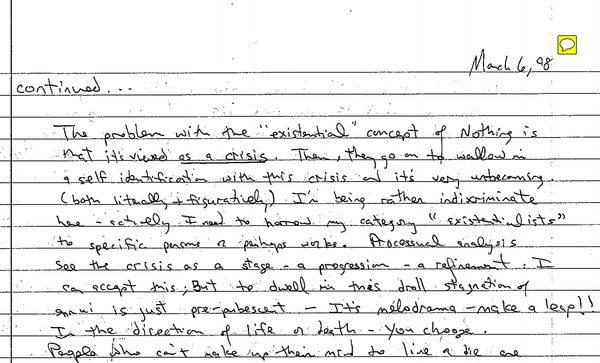 March 6, 98
continued...
The problem with the "existential" concept of Nothing is
that it's viewed as a crisis. Then, they go on to wallow in
a self identification with this crisis and it's very unbecoming.
(both literally + figuratively) I'm being rather indiscriminate
here - actually I need to narrow my category "existentialists"
to specific persons or perhaps works. Processual analysis
see the crisis as a stage - a progression - a refinement. I
can accept this; But to dwell in this droll stagnation of
ennui is just pre-pubescent - It's melodrama - make a leap!!
In the direction of life or death - You choose.
People who can't make up their mind to live or die are